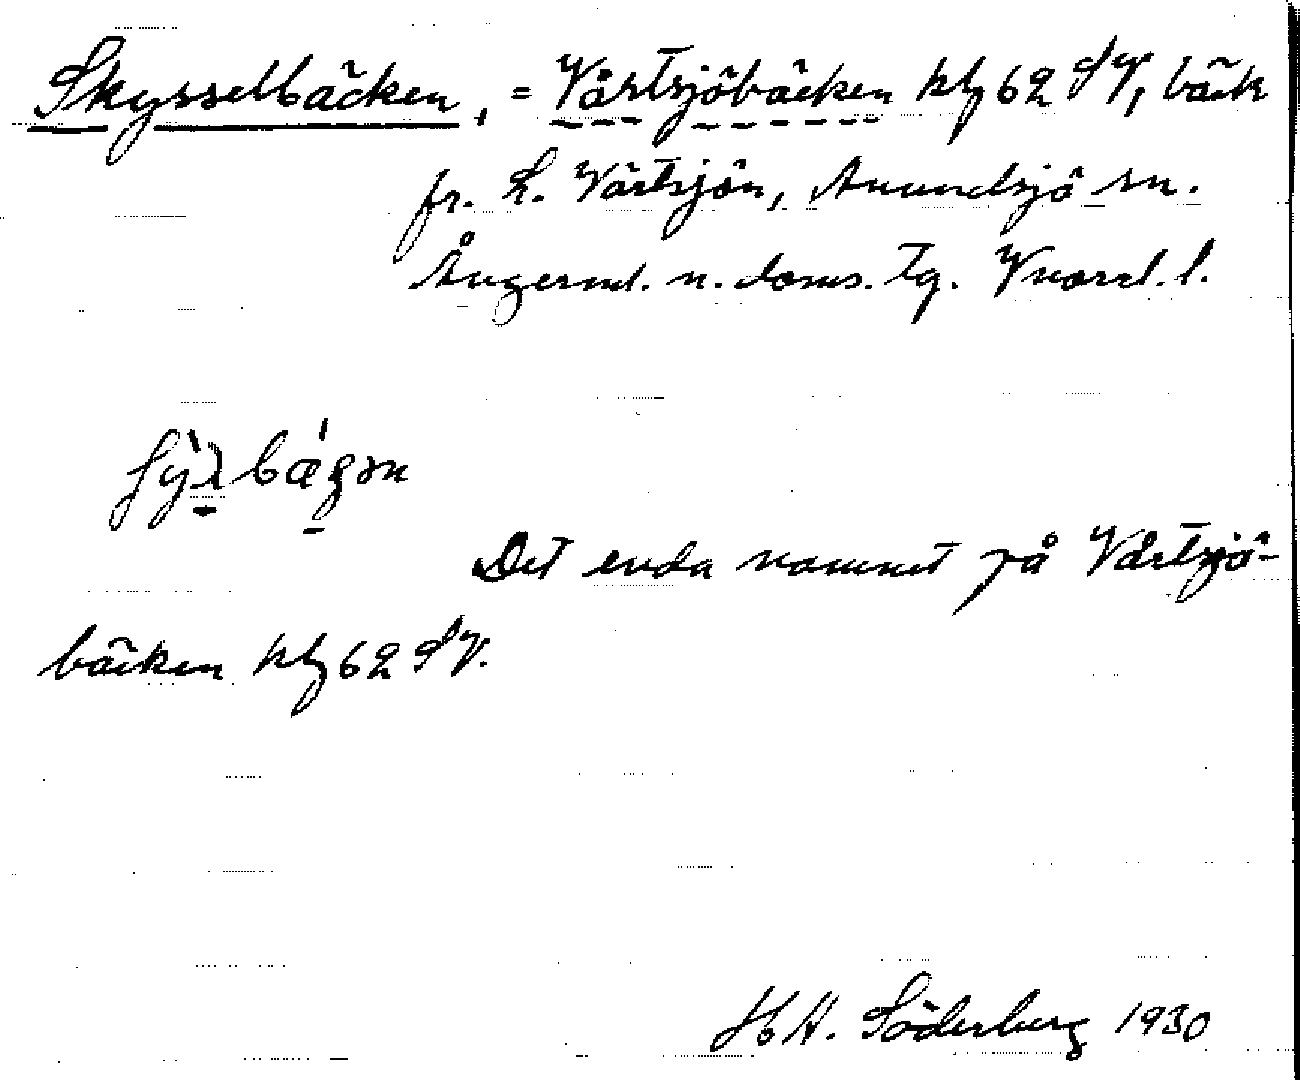 Skysselbäcken, = Vårtsjöbäcken kbl 62 SV, bäck
fr. L. Vårtsjön, Anundsjö sn.
Ångerml. n. doms. tg. Vnorrl. l.
Det enda namnet på Vårtsjö-
bäcken kbl 62 SV.
H A. Söderberg 1930